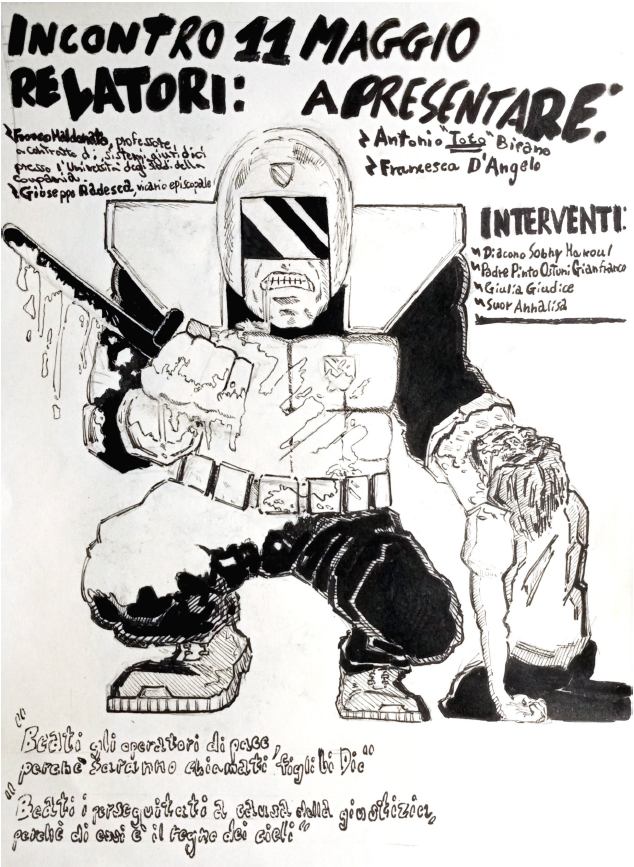 INCONTRO 11 MAGGIO
RELATORI:
Franco Maldonato, professore
a contratto di, sistemi giuridici
presso l'Università degli
Giuseppe Radesca, vicario episcopale
A PRESENTARE:
Antonio "Toto" Bifano
Francesca D'Angelo
INTERVENTI:
Diacono Sobhy
Padre Pinto Ostuni Gianfranco
Giulia Giudice
Suor Annalisa
"Beati gli operatori di pace,
perchè saranno chiamati figli di Dio"
"Beati i perseguitati a causa della giustizia,
perchè di essi è il regno dei cieli"